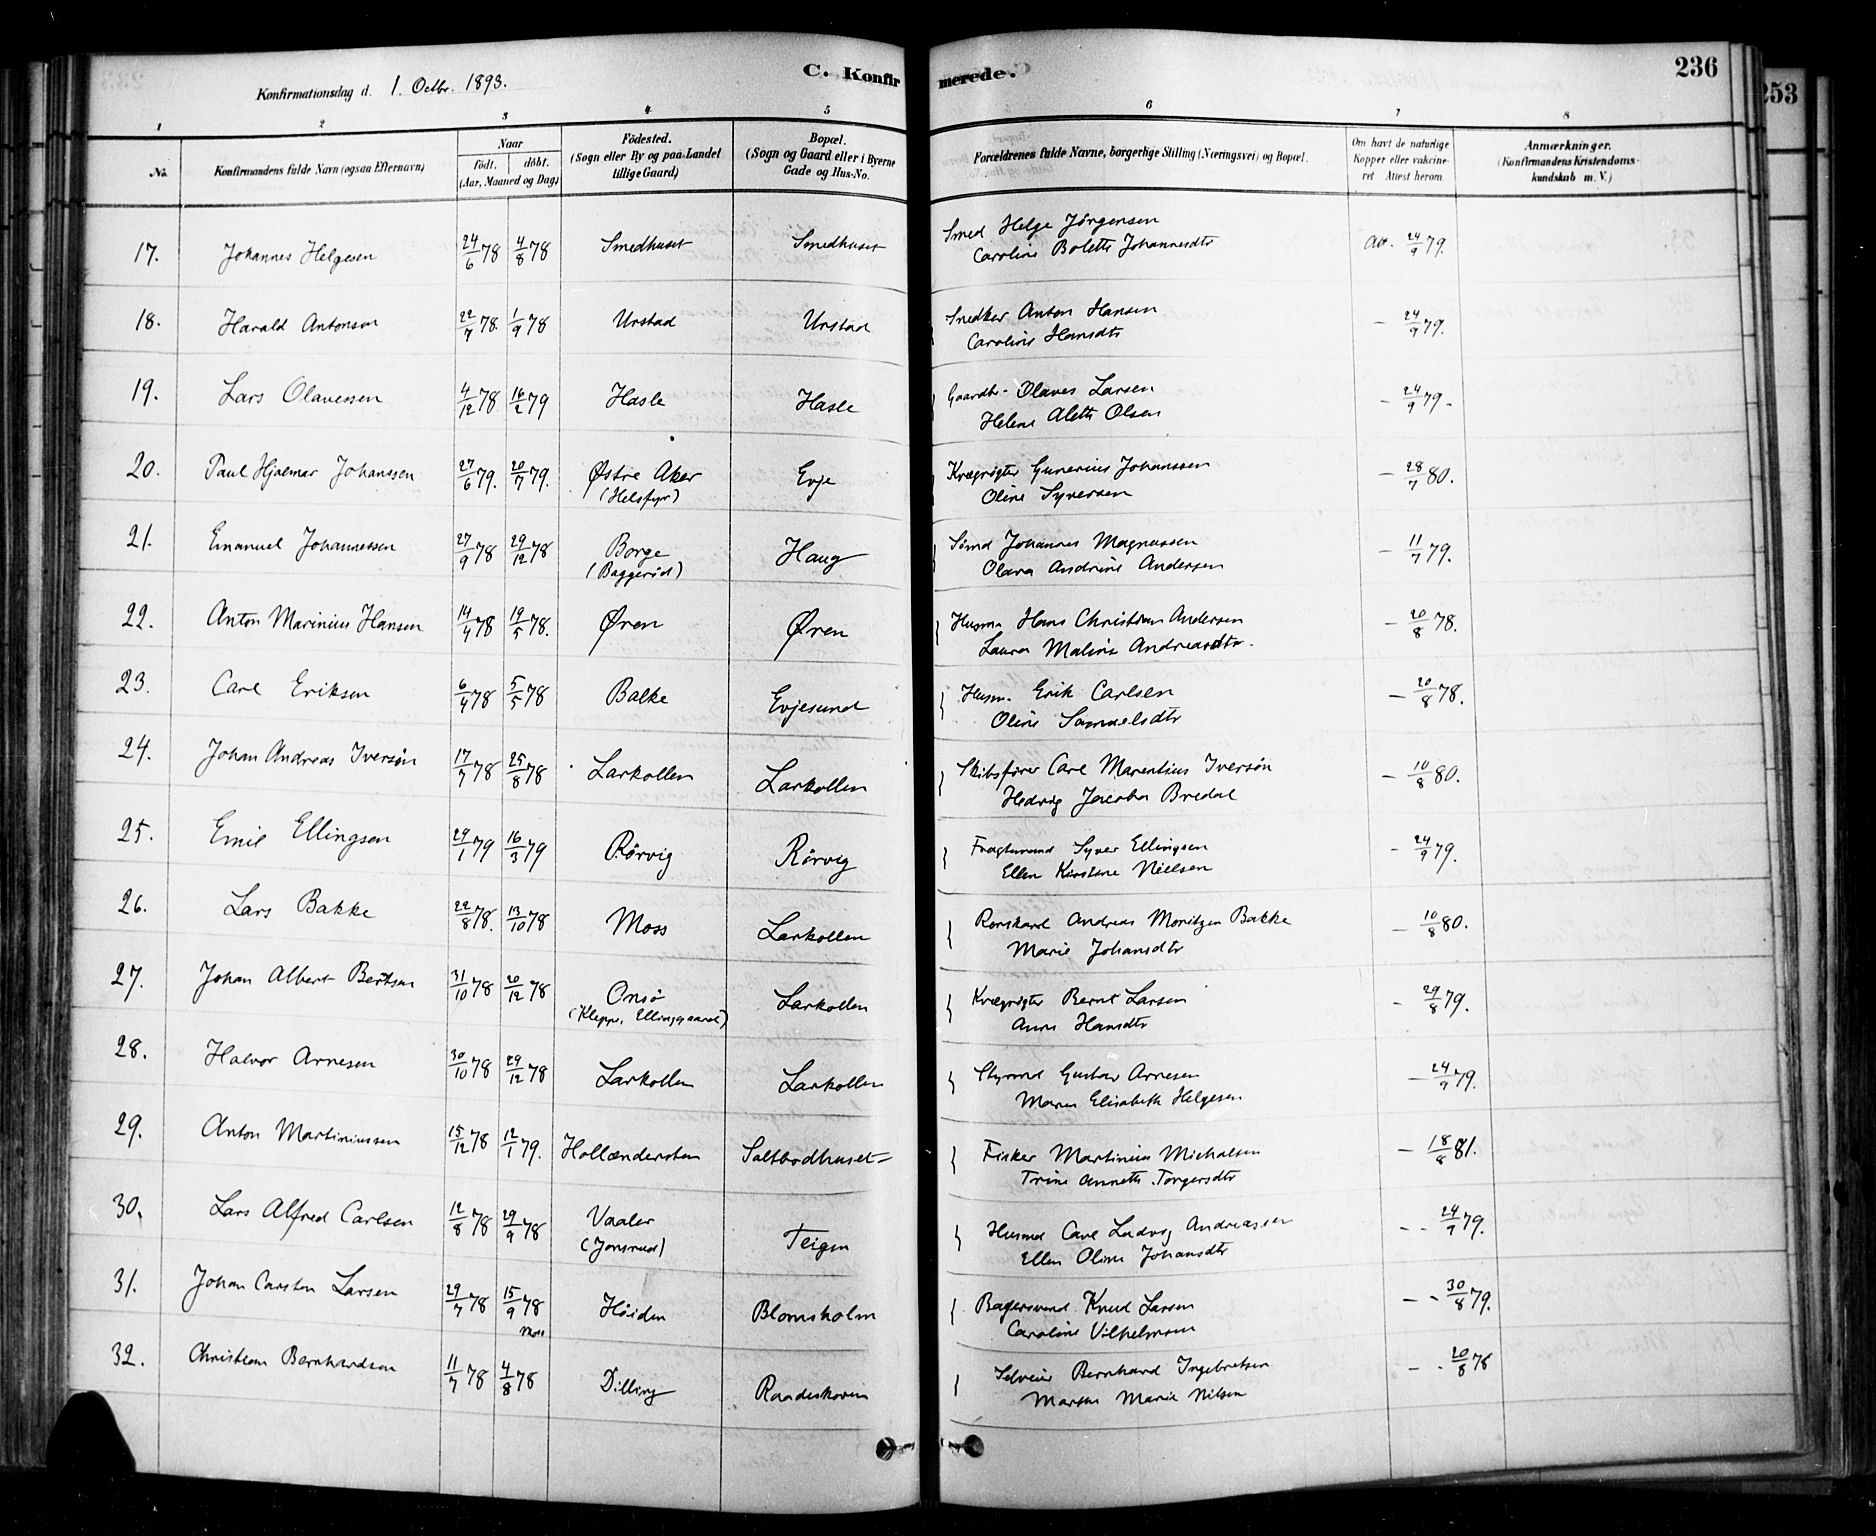 C. Konfirmerede. 236
253
Konfirmationsdag d. 1. Octbr. 1893.
1 2 3 4 5 6 7 8
No. Konfirmandens fulde Navn (ogsaa Efternavn) Naar födt. döbt. (Aar, Maaned og Dag) Födested. (Sogn eller By og paa Landet tillige Gaard) Bopæl. (Sogn og Gaard eller i Byerne Gade og Hus-No. Forældrenes fulde Navne, borgerlige Stilling (Næringsvei) og Bopæl. Om havt de naturlige Kopper eller vakcineret Attest herom. Anmærkninger. (Konfirmandens Kristendomskundskab m. V.)
17. Johannes Helgesen 24/6 78 4/8 78 Smedhuset Smedhuset Smed Helge Jörgensen
Caroline Bolette Johannesdtr Att. 24/9 79.
18. Harald Antonsen 22/7 78. 1/9 78 Urstad Urstad Snedker Anton Hansen
Caroline Hansdtr – 24/9 79.
19. Lars Olavessen 4/12 78 16/2 79 Hasle Hasle Gaardbr. Olaves Larsen
Helene Alette Olsen – 24/9 79.
20. Paul Hjalmar Johanssen 27/6 79. 20/7 79. Østre Aker
(Helsfyr) Evje Kvægrögter Gunerius Johanssen
Oline Syversen – 28/7 80.
21. Emanuel Johannessen 27/9 78 29/12 78 Borge
(Baggeröd) Haug Sömd Johannes Magnussen
Olava Andrine Andersen – 11/7 79.
22. Anton Marinius Hansen 14/4 78 19/5 78. Øren Øren Husm. Hans Christian Andersen
Laura Maline Andreasdtr. – 20/8 78.
23. Carl Eriksen 6/4 78 5/5 78 Balke Evjesund Husm. Erik Carlsen
Oline Samuelsdtr – 20/8 78.
24. Johan Andreas Iversön 17/7 78 25/8 78 Larkollen Larkollen Skibsförer Carl Marentius Iversön
Hedvig Jacoba Bredal – 10/8 80.
25. Emil Ellingsen 29/1 79 16/3 79 Rörvig Rörvig Fragtemand Syver Ellingsen
Ellen Kirstine Nielsen – 24/9 79.
26. Lars Bakke 22/8 78. 13/10 78 Moss Larkollen Rorskarl Andreas Moritzen Bakke
Marie Johansdtr – 10/8 80.
27. Johan Albert Berntsen 31/10 78 20/12 78 Onsö
(Kleppe, Ellinggaard) Larkollen Kvægrögter Bernt Larsen
Anne Hansdtr – 29/8 79.
28. Halvor Arnesen 30/10 78 29/12 78 Larkollen Larkollen Styrmd Gustav Arnesen
Maren Elisabeth Helgesen – 24/9 79.
29. Anton Martiniussen 15/12 78 12/1 79. Hollændersten Saltbodhuset Fisker Martinius Michalsen
Trine Annette Torgersdtr – 18/8 81.
30. Lars Alfred Carlsen 12/8 78 29/9 78 Vaaler
(Jonsrud) Teigen Husmd Carl Ludvig Andreassen
Ellen Oline Johansdtr – – 24/9 79.
31. Johan Carsten Larsen 29/7 78 15/9 78
Moss Höiden Blomsholm Bagersvend Knud Larsen
Caroline Vilhelmsen – – 30/8 79.
32. Christian Bernhardsen 11/7 78 4/8 78 Dilling Raadeskoven Selveier Bernhard Ingebretsen
Marthe Marie Nilsen – – 20/8 78